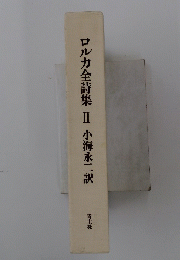 ロルカ全詩集 II 小海永二訳
青土社